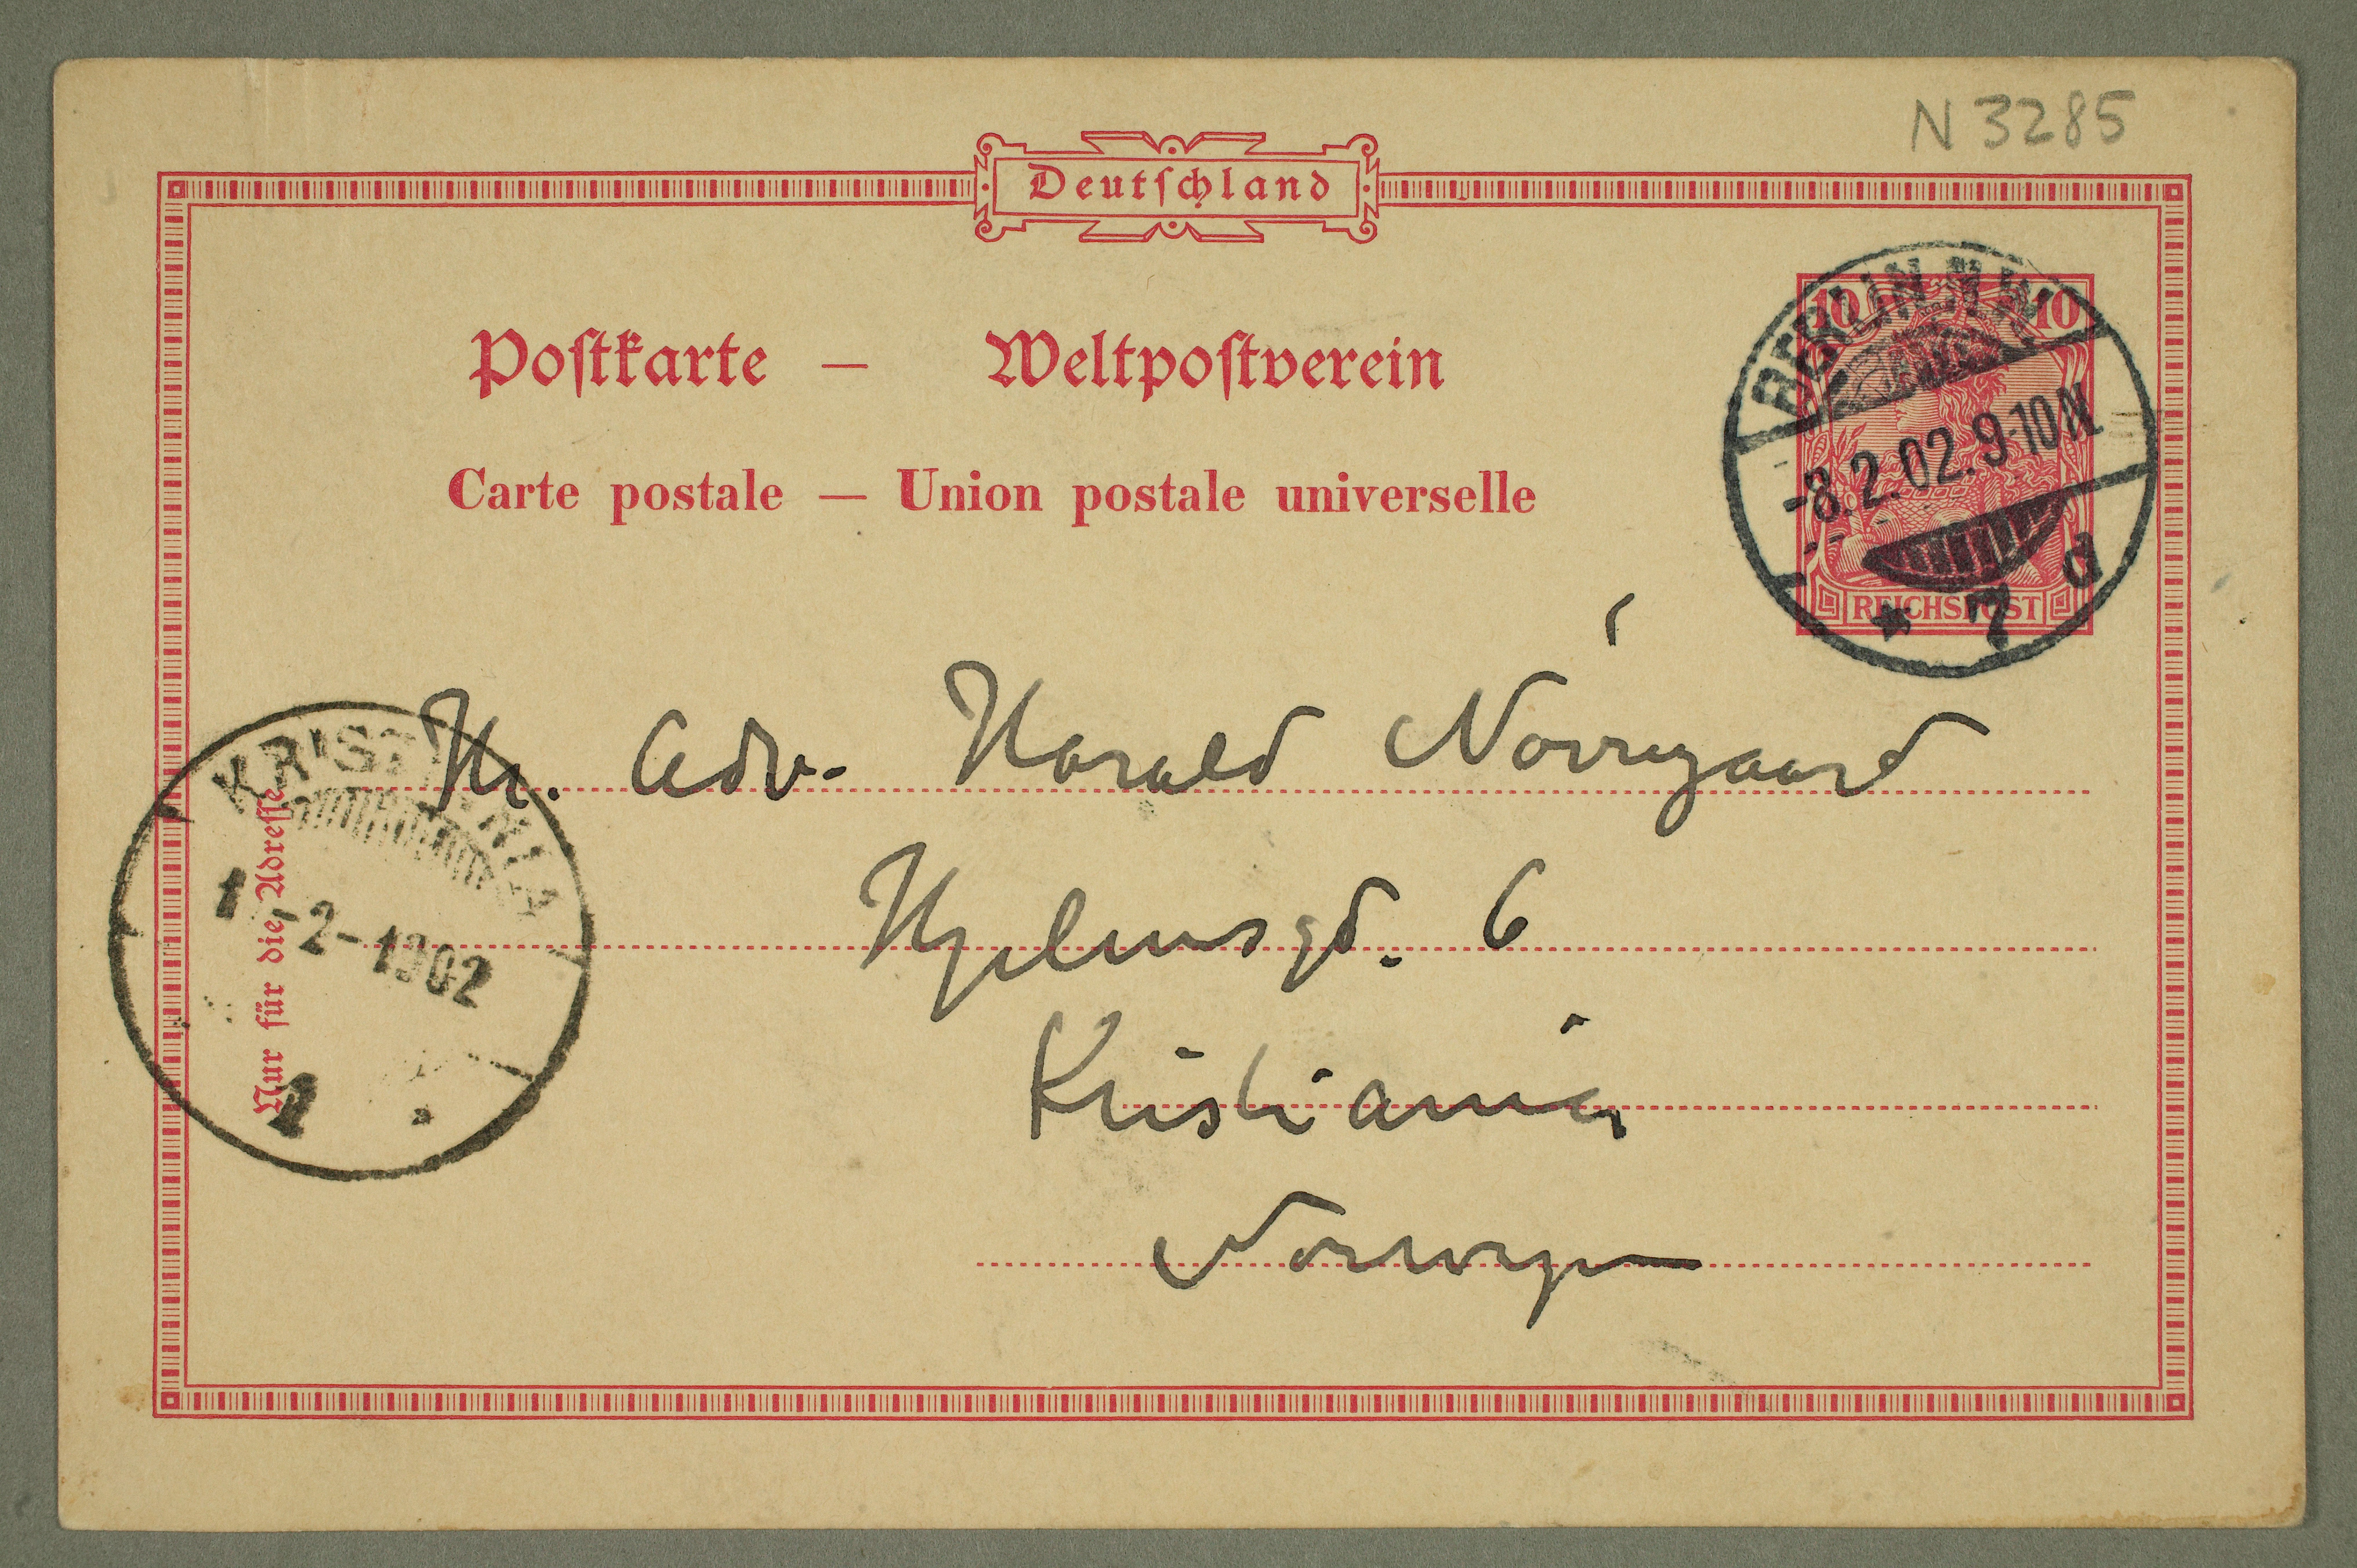 N 3285
Deutschland
Postkarte — Weltpostverein
Carte postale — Union postale universelle
10 10
REICHSPOST
BERLIN N.W.
-8.2.02.9-10N
* 7 d
Hr. Adv. Harald Nörregaard
Hjelmsgd. 6
Kristiania
Norwegen
KRISTIANIA
-2-1902
1
Nur für die Adresse